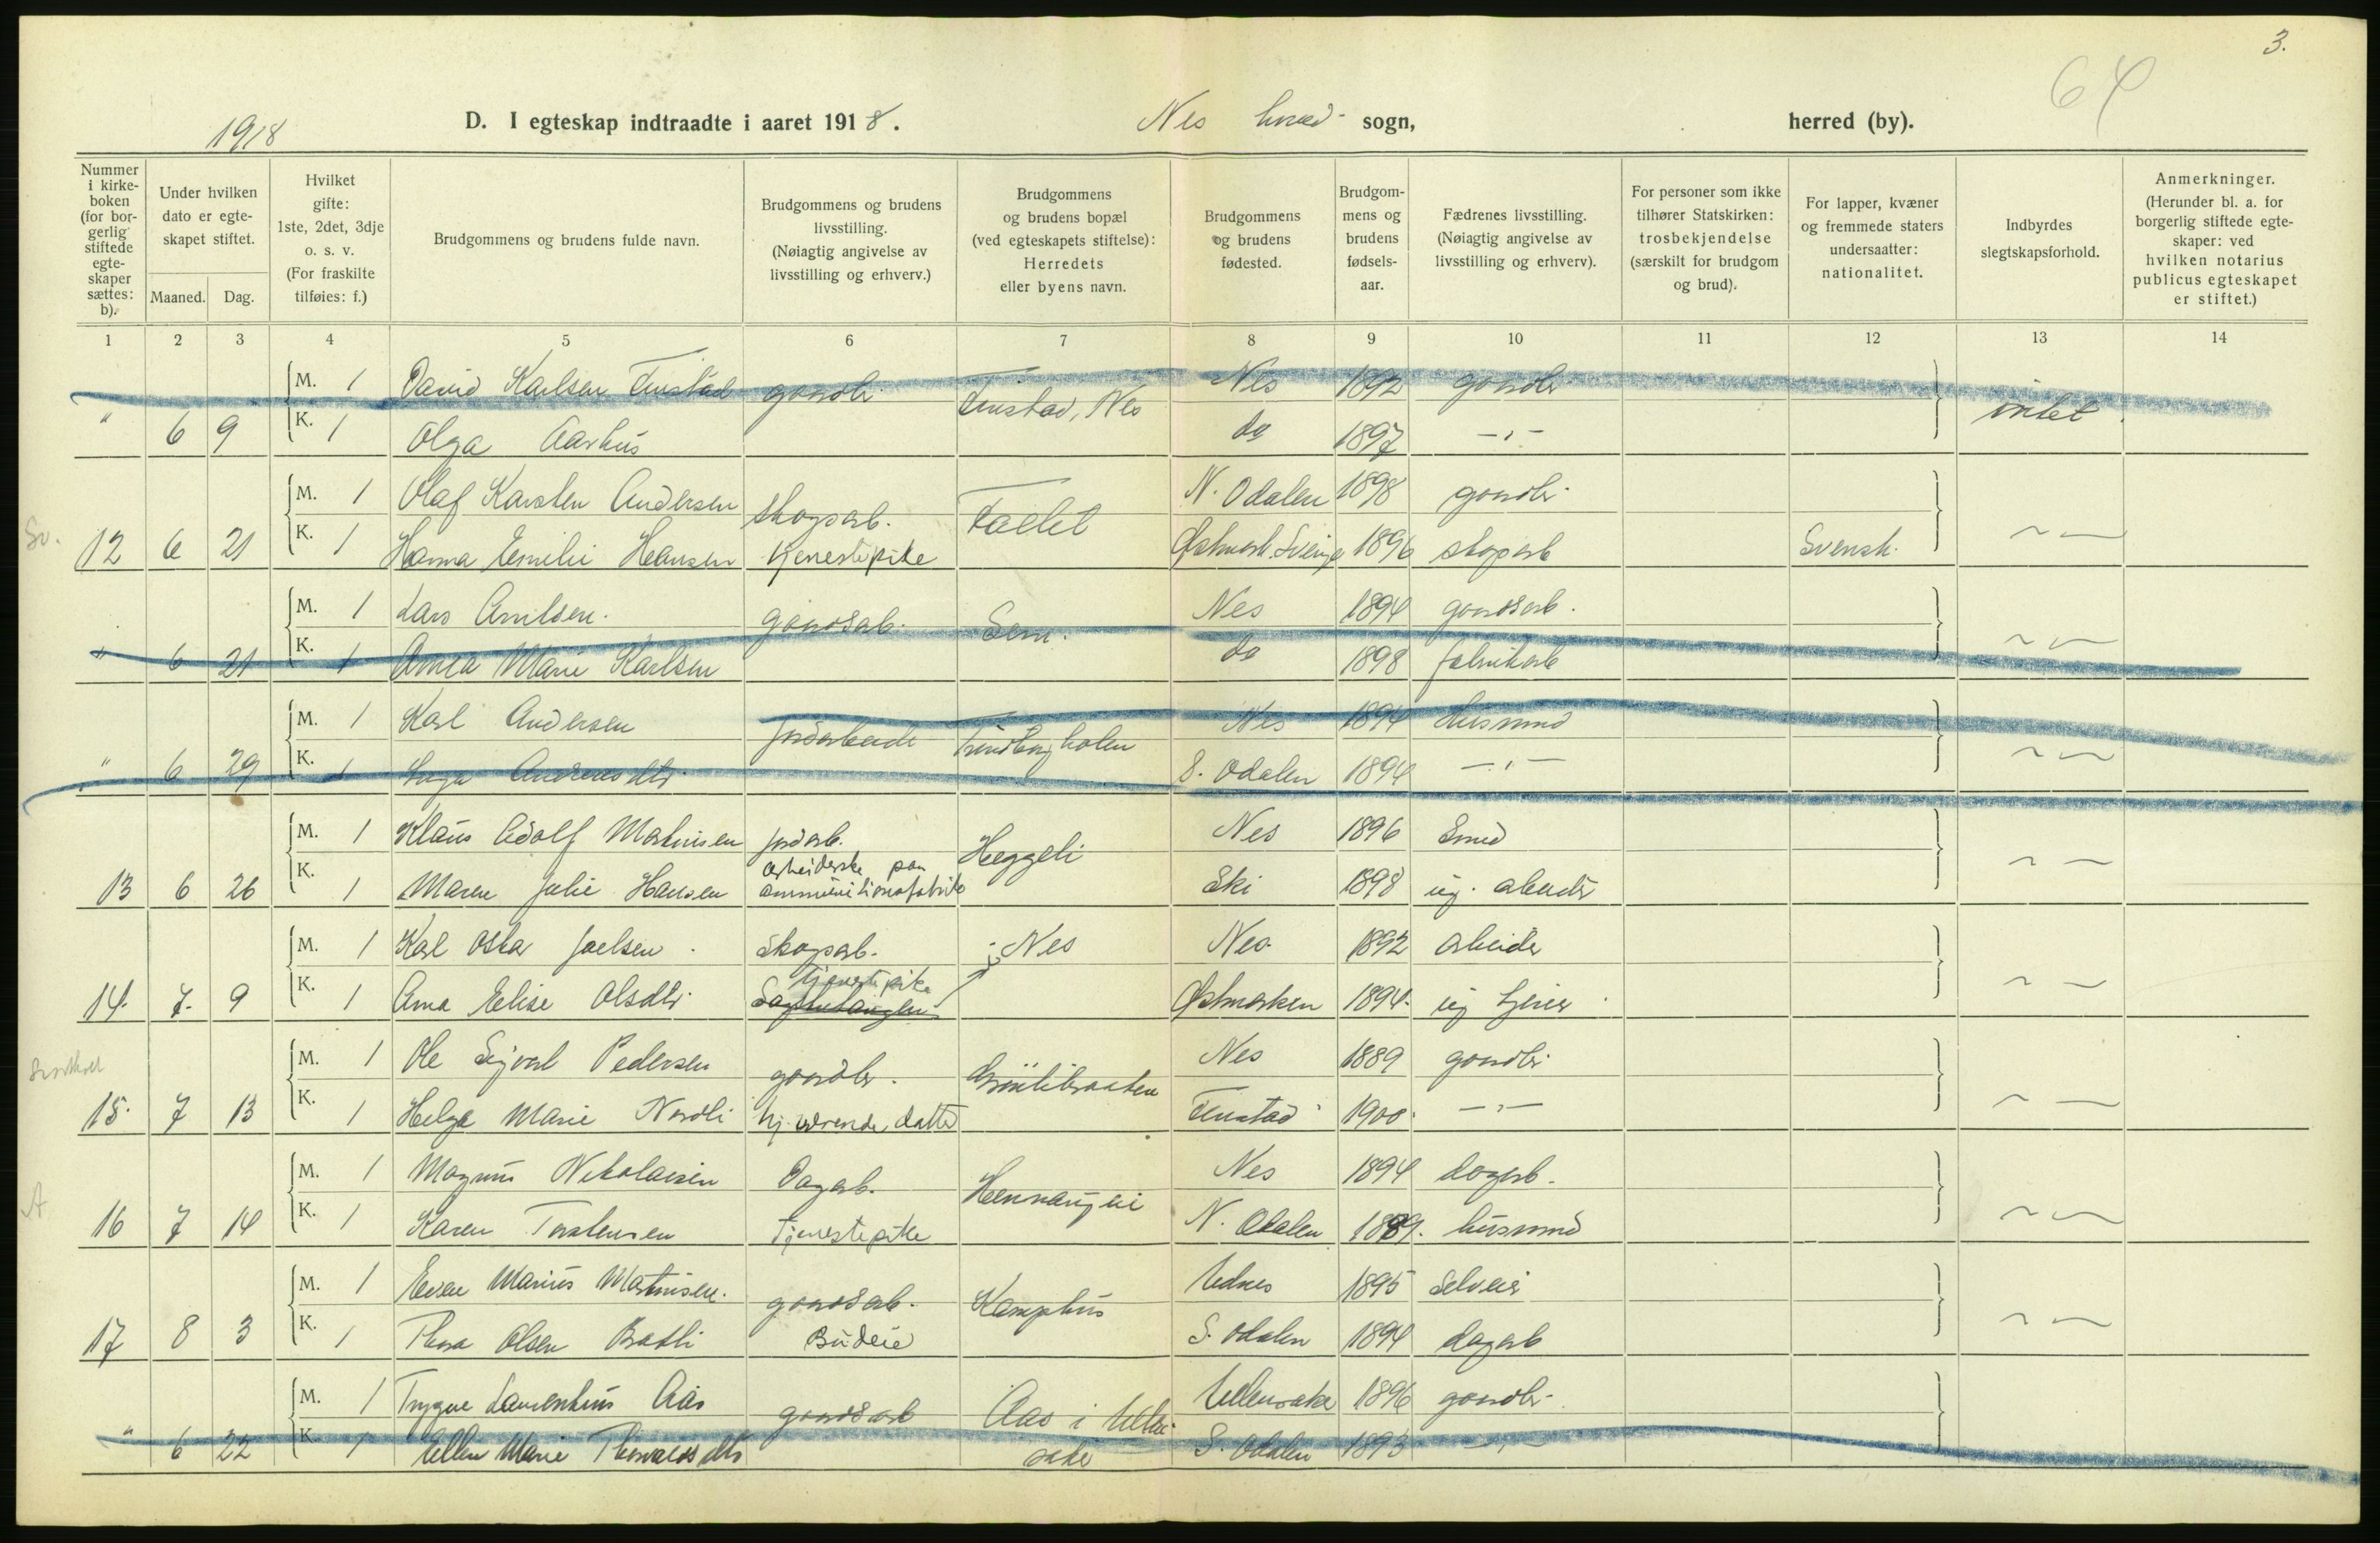 3.
64
1918
D. I egteskap indtraadte i aaret 1918. Nes hovd- sogn, herred (by).
Nummer i kirkeboken (for borgerlig stiftede egteskaper sættes: b).
Under hvilken dato er egteskapet stiftet.
Maaned. Dag.
Hvilket gifte: 1ste, 2det, 3dje o. s. v. (For fraskilte tilføies: f.)
Brudgommens og brudens fulde navn.
Brudgommens og brudens livsstilling. (Nøiagtig angivelse av livsstilling og erhverv.)
Brudgommens og brudens bopæl (ved egteskapets stiftelse): Herredets eller byens navn.
Brudgommens og brudens fødested.
Brudgommens og brudens fødselsaar.
Fædrenes livsstilling. (Nøiagtig angivelse av livsstilling og erhverv).
For personer som ikke tilhører Statskirken: trosbekjendelse (særskilt for brudgom og brud).
For lapper, kvæner og fremmede staters undersaatter: nationalitet.
Indbyrdes slegtskapsforhold.
Anmerkninger. (Herunder bl. a. for borgerlig stiftede egteskaper: ved hvilken notarius publicus egteskapet er stiftet.)
1 2 3 4 5 6 7 8 9 10 11 12 13 14
M. 1 David Karlsen Finstad gaardbr. Finstad, Nes Nes 1892 gaardbr
" 6 9 K. 1 Olga Aarhus do 1897 -"- intet
M. 1 Olaf Karsten Andersen skogsarb. Faelet N. Odalen 1898 gaardbr.
Sv. 12 6 21 K. 1 Hanna Emilie Hansen tjenestepike Østmark. Sverige 1896 skogarb Svensk. ~ —
M. 1 Lars Arnilsen. gaardsarb. Sem. Nes 1894 gaardsarb.
" 6 21 K. 1 Anna Marie Karlsen do 1898 fabrikarb ~ —
M. 1 Karl Andersen jordarbeide Nes 1894 husmand
" 6 29 K. 1 Inga Andreasdtr. S. Odalen 1894 -"- ~ —
M. 1 Klaus Adolf Martinsen jordarb. Heggeli Nes 1896 Smed
13 6 26 K. 1 Maren Julie Hansen arbeiderske paa ammunitionsfabrik Ski 1898 ug. arbeider ~ —
M. 1 Karl Oskar Joelsen. Skogsarb. Nes Nes 1892 arbeider
14. 7. 9 K. 1 Anna Elise Olsdtr. tjenestepike Østmarken 1894. ug ~ —
M. 1 Ole Sigvart Pedersen gaardbr. Nes 1889 gaardbr.
15. 7 13 K. 1 Helga Marie Nordli hj. værende datter Finstad 1900. -"- ~ —
M. 1 Magnus Nikolaisen Dagarb. Nes 1894 dagarb.
A 16 7 14 K. 1 Karen Torstensen Tjenestepike N. Odalen 1889. husmand ~ —
M. 1 Even Marius Martinsen. gaardsarb. Kamphus Udnes 1895 Selveier
17 8 3 K. 1 Thora Olsen Bratli Budeie S. Odalen 1894 dagarb ~ —
M. 1 Trygve Laurentius Aas gaardsarb Aas i Ullensaker Ullensaker 1896 gaardbr.
" 6 22 K. 1 Ellen Marie Thorvaldsdtr S. Odalen 1893 -"-